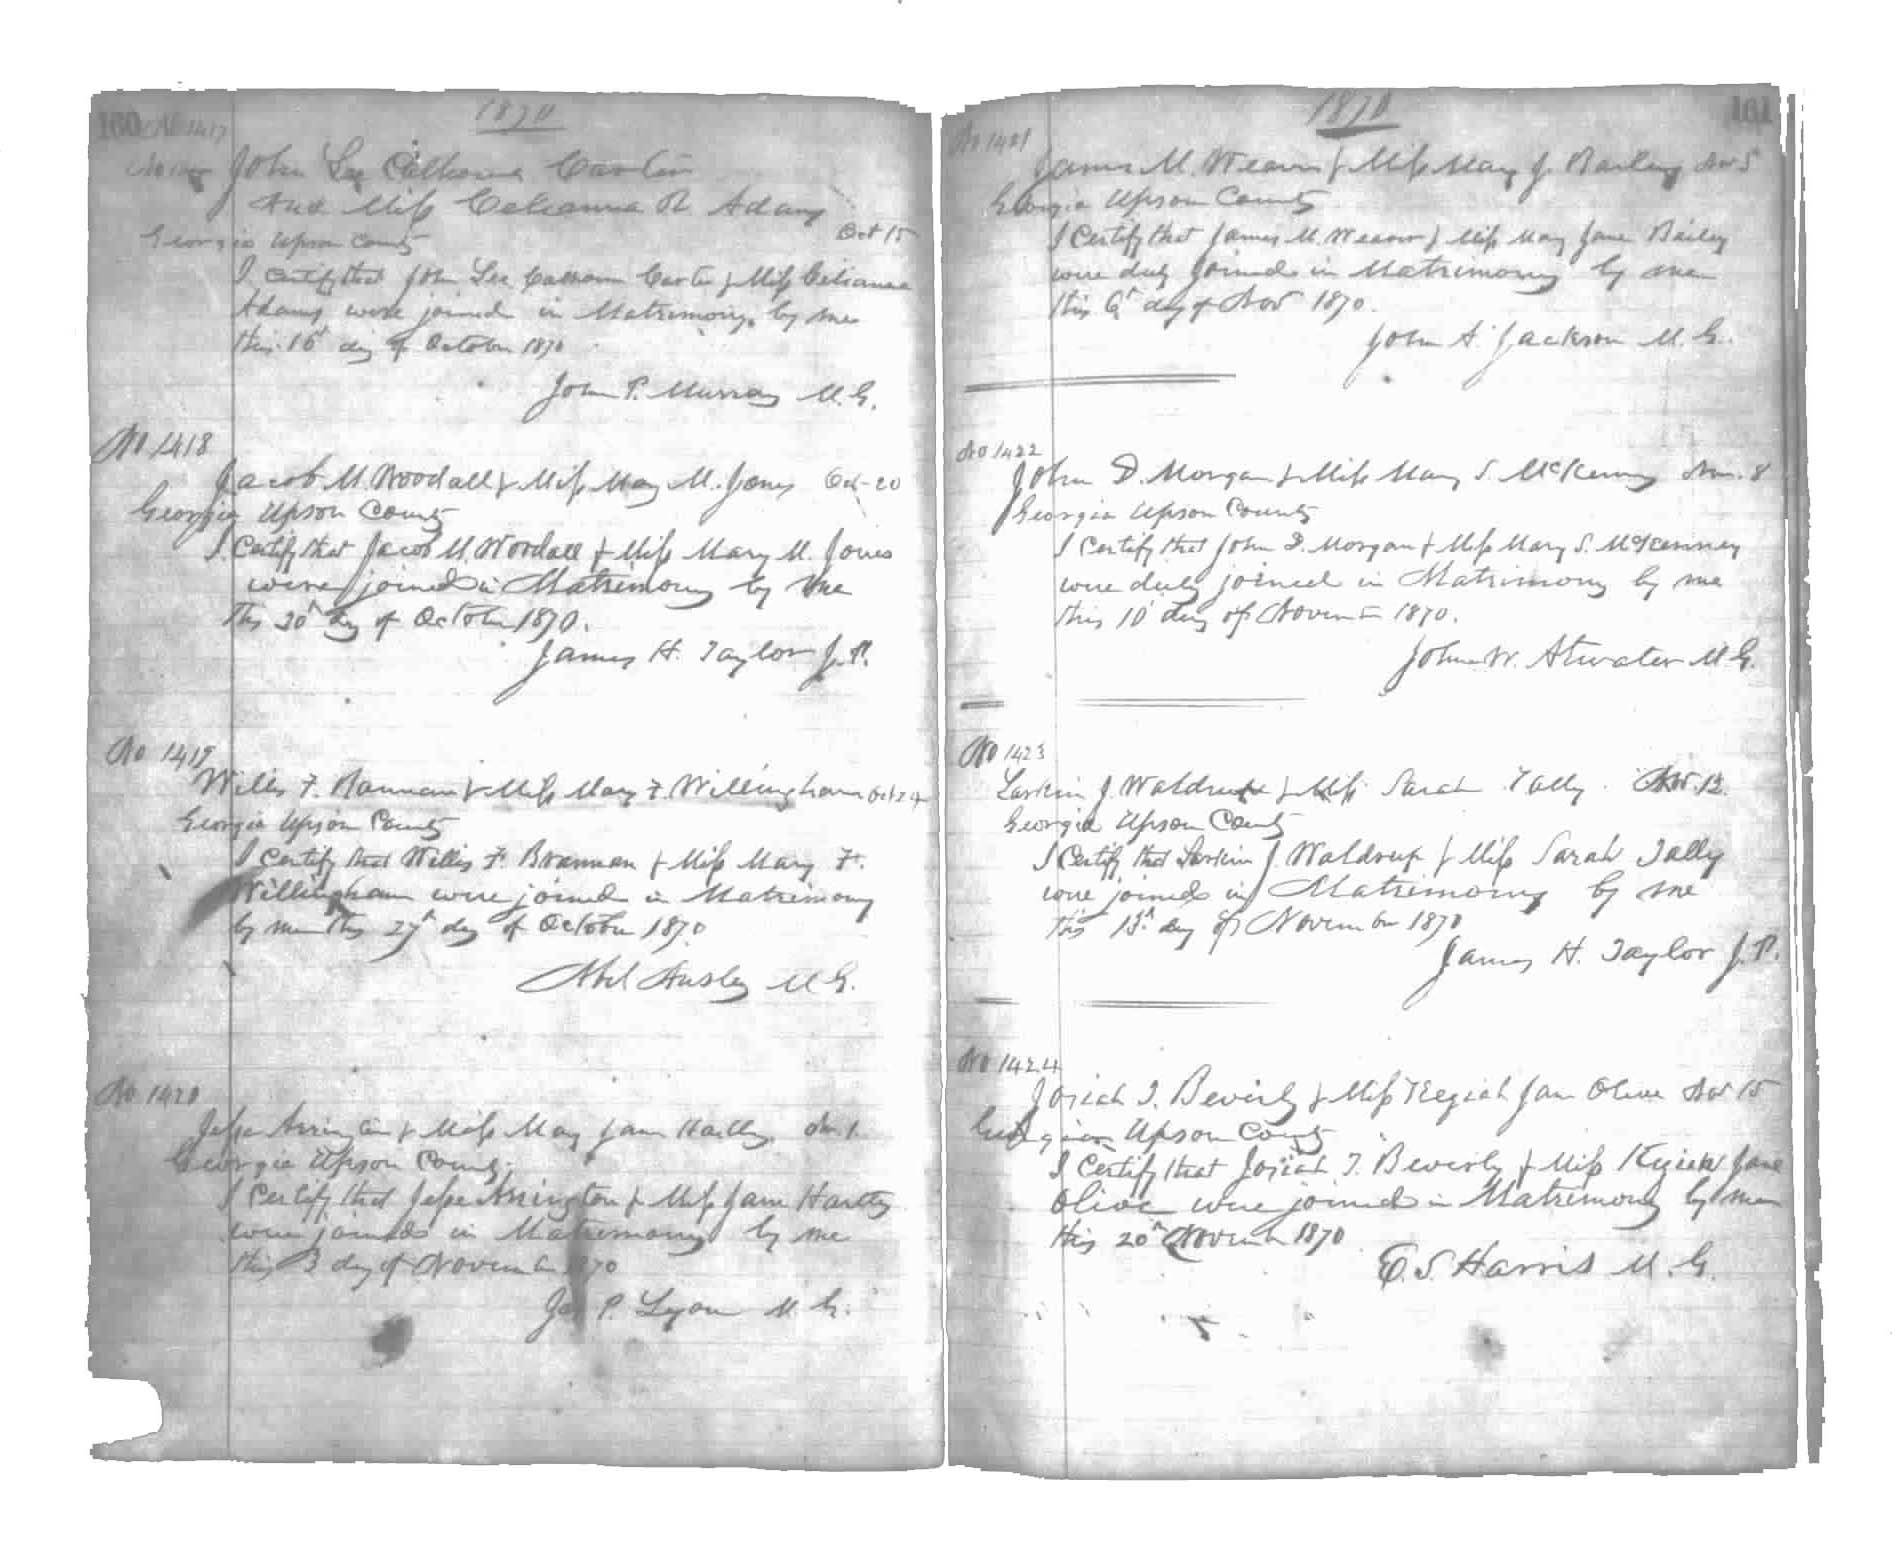 160
1870
No 1417
John Lee Calhoun Carter
And Miss Celianna R. Adams
Oct 15
Georgia Upson County
I Certify that John Lee Calhoun Carter & Miss Celianna
Adams were joined in Matrimony by me
this 16th day of October 1870
John P. Murray M.G.
No 1418
Jacob M. Woodall & Miss Mary M. Jones Oct 20
Georgia Upson County
I Certify that Jacob M. Woodall & Miss Mary M. Jones
were joined in Matrimony by me
this 20th day of October 1870.
James H. Taylor J.P.
No 1419
Willis F. Brannan & Miss Mary F. Willingham Oct 24
Georgia Upson County
I Certify that Willis F. Brannan & Miss Mary F.
Willingham were joined in Matrimony
by me this 27th day of October 1870
Abel Ansley M.G.
No 1420
Jesse Arrington & Miss Mary Jane Hartley Nov. 1.
Georgia Upson County
I Certify that Jesse Arrington & Miss Jane Hartley
were joined in Matrimony by me
this 3 day of November 1870
P. Lyon M.G.
161
1870
No 1421
James M. Weaver & Miss Mary J. Bailey Nov 5
Georgia Upson County
I Certify that James M. Weaver & Miss Mary Jane Bailey
were duly joined in Matrimony by me
this 6th day of Nov 1870.
John A. Jackson M.G.
No 1422
John D. Morgan & Miss Mary S. McKenny Nov. 8
Georgia Upson County
I Certify that John D. Morgan & Miss Mary S. McKenney
were duly joined in Matrimony by me
this 10th day of November 1870.
John W. Atwater M.G.
No 1423
Larkin J. Waldrup & Miss Sarah Tally. Nov. 12.
Georgia Upson County
I Certify that Larkin J. Waldrup & Miss Sarah Tally
were joined in Matrimony by me
this 13th day of November 1870
James H. Taylor J.P.
No 1424
Josiah T. Beverly & Miss Keziah Jane Olive Nov 15
Georgia Upson County
I Certify that Josiah T. Beverly & Miss Keziah Jane
Olive were joined in Matrimony by me
this 20th November 1870
E. S. Harris M.G.